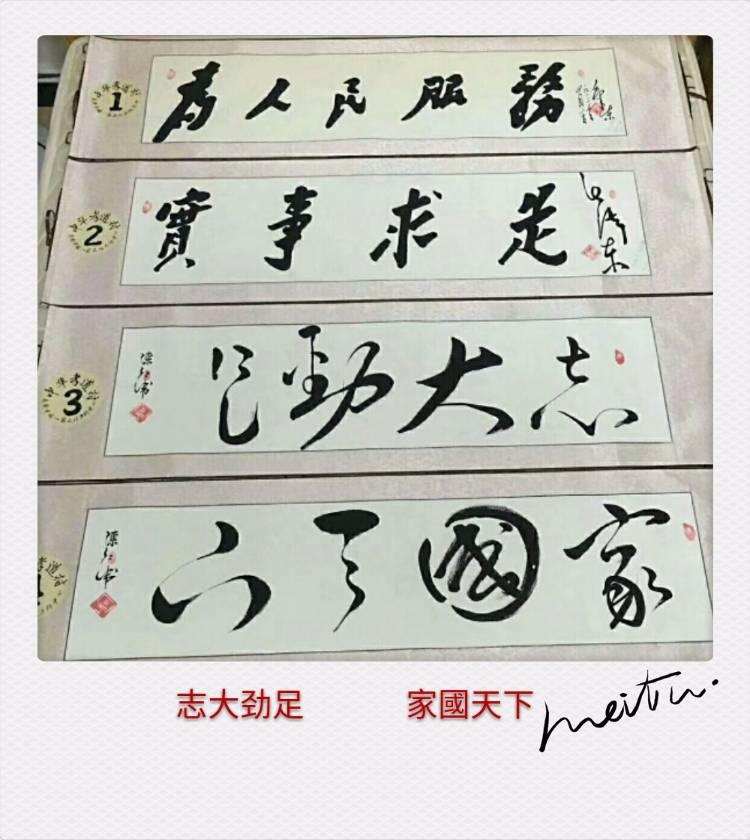 1
為人民服務
2
實事求是
毛泽东
3
志大勁足
家國天下
志大劲足 家國天下
meitu.